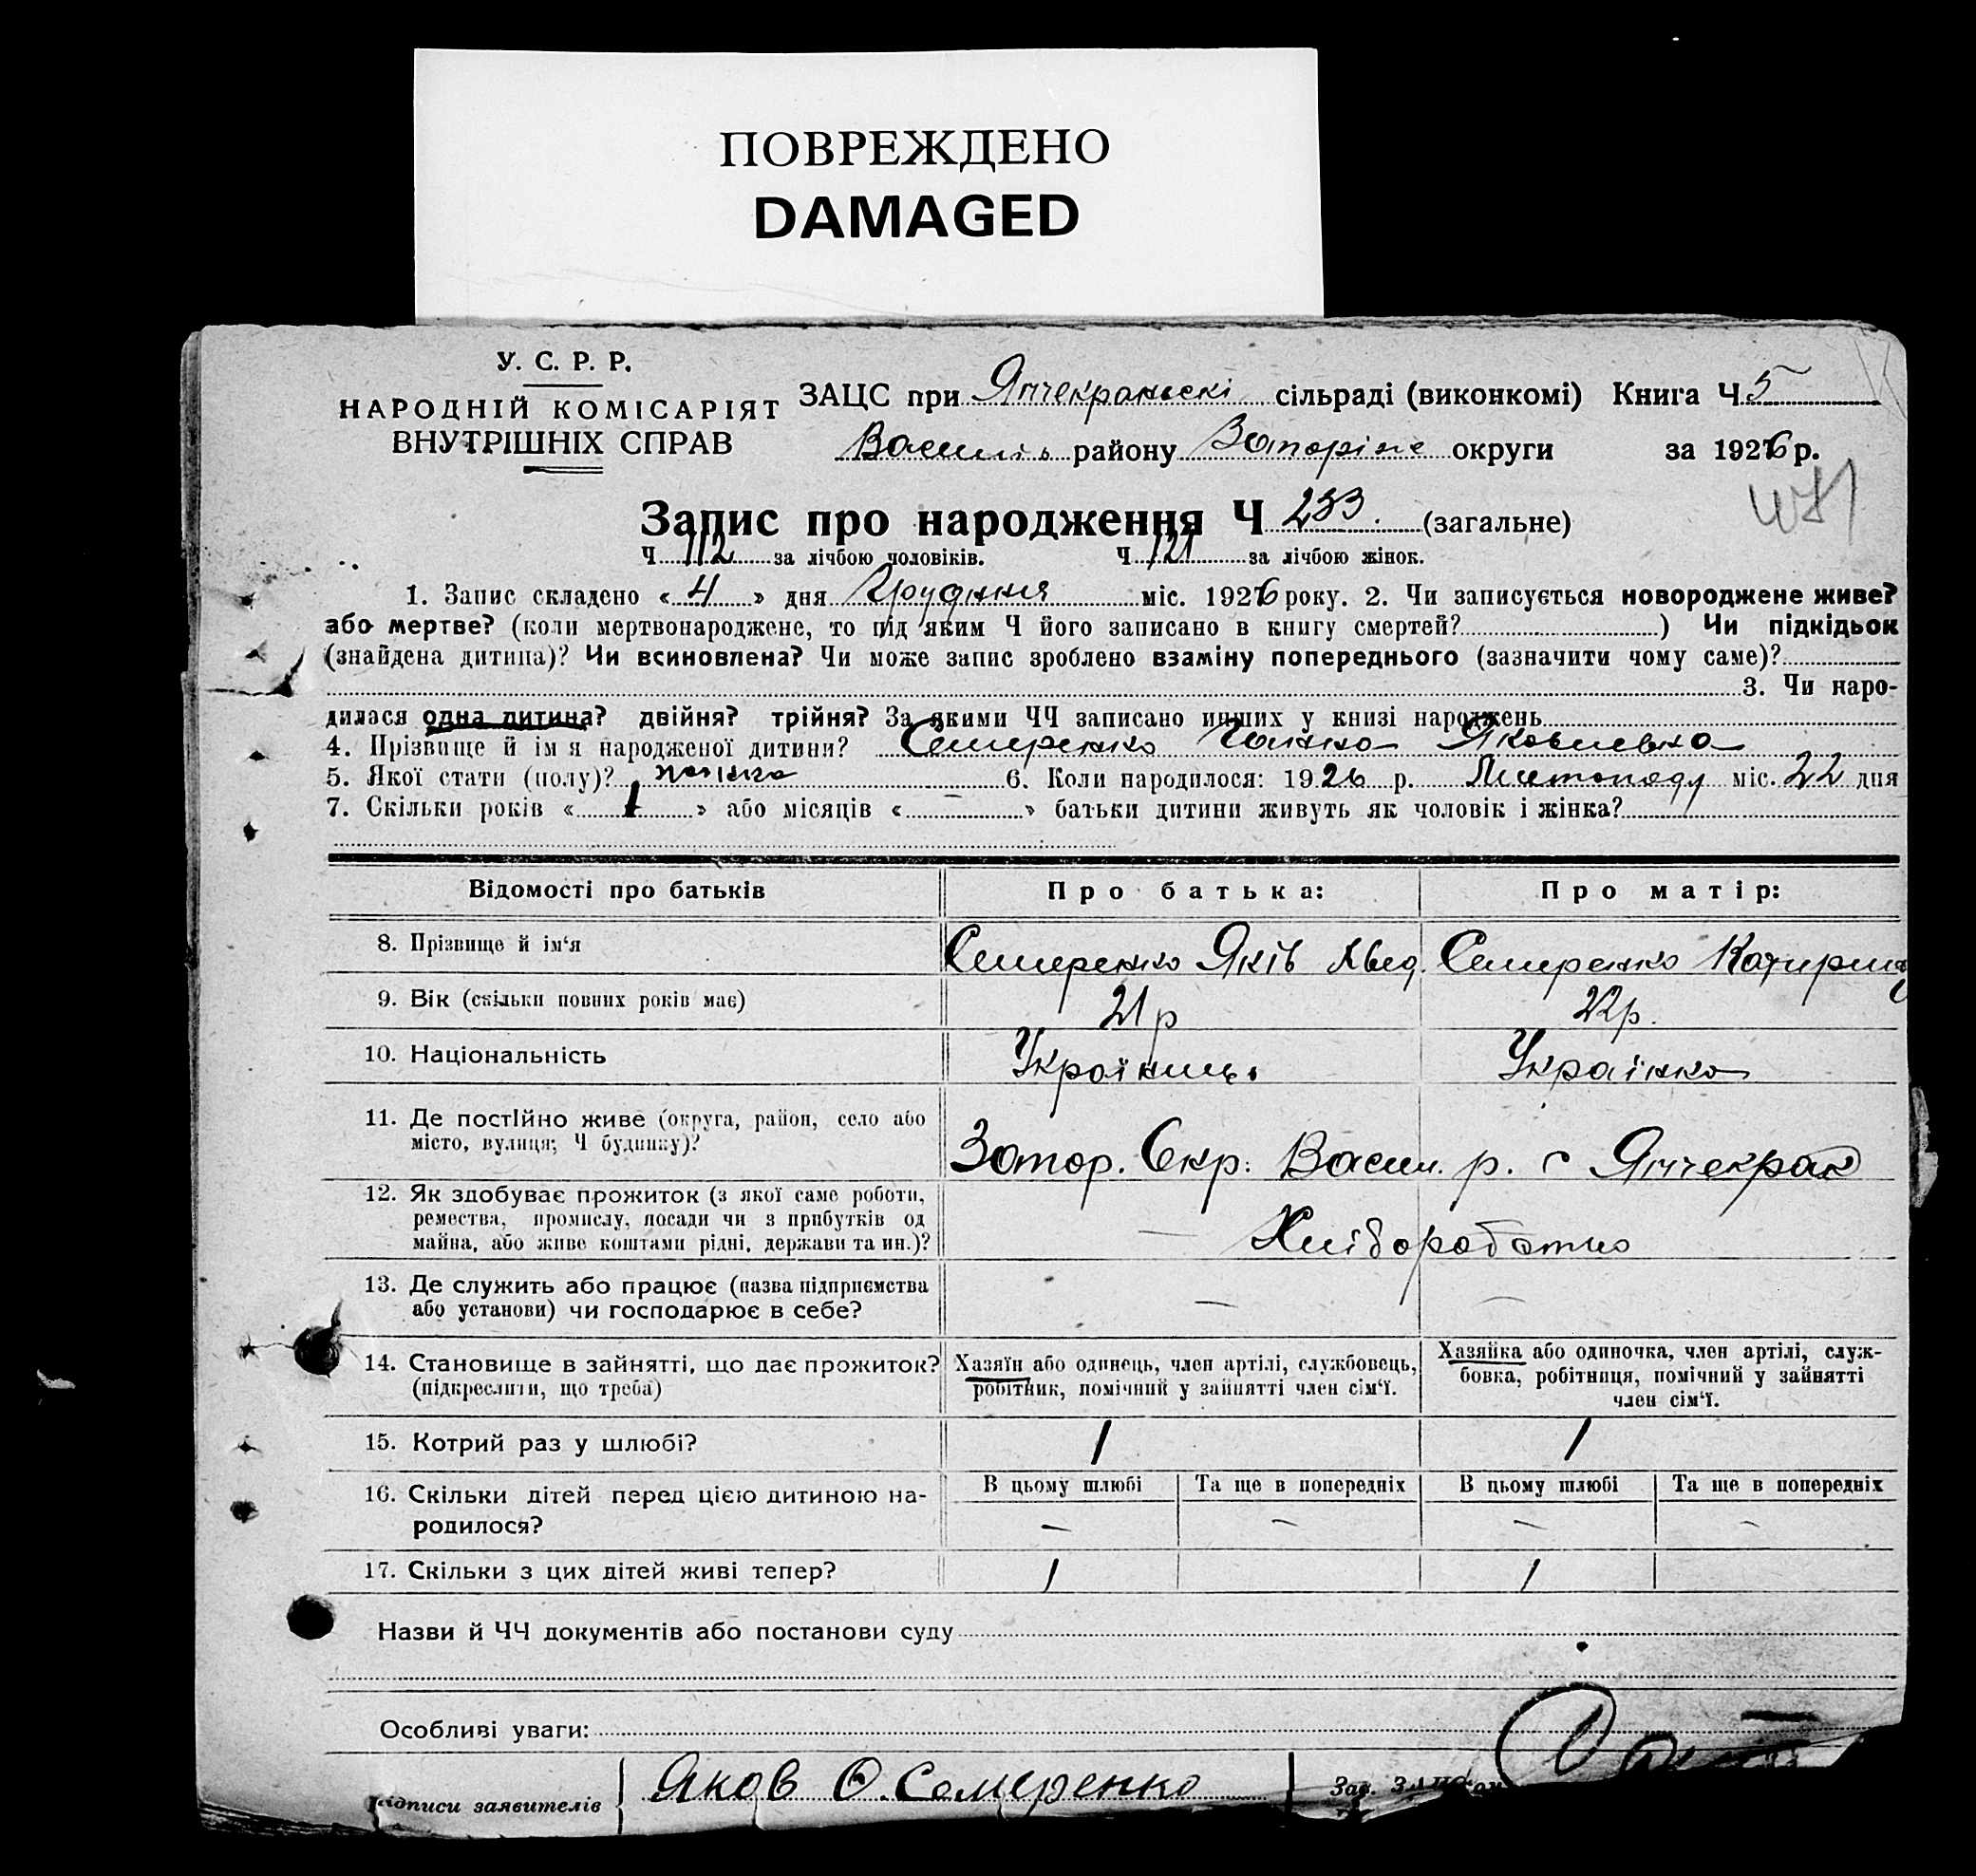 ПОВРЕЖДЕНО
DAMAGED
У. С. Р. Р.
НАРОДНІЙ КОМІСАРІЯТ
ВНУТРІШНІХ СПРАВ
ЗАЦС при Япчекракській сільраді (виконкомі) Книга Ч 5
Василів району Запоріже округи за 1926 р.
Запис про народження Ч 233. (загальне)
Ч 112 за лічбою чоловіків. Ч 121 за лічбою жінок.
1. Запис складено « 4 » дня Грудння міс. 1926 року. 2. Чи записується новороджене живе?
або мертве? (коли мертвонароджене, то під яким Ч його записано в книгу смертей? ) Чи підкідьок
(знайдена дитина)? Чи всиновлена? Чи може запис зроблено взаміну попереднього (зазначити чому саме)?
3. Чи наро-
дилася одна дитина? двійня? трійня? За якими ЧЧ записано инших у книзі народжень
4. Прізвище й ім я народженої дитини? Семеренко Яковлевна
5. Якої стати (полу)? жіноча 6. Коли народилося: 1926 р. Листопаду міс. 22 дня
7. Скільки років « 1 » або місяців « – » батьки дитини живуть як чоловік і жінка?
Відомості про батьків Про батька: Про матір:
8. Прізвище й ім'я Семеренко Яків Семеренко Катирина
9. Вік (скільки повних років має) 21 р 22 р.
10. Національність Українець Українка
11. Де постійно живе (округа, район, село або
місто, вулиця; Ч будинку)?
Запор. Окр. Васил. р. с Япчекрак
12. Як здобуває прожиток (з якої саме роботи,
ремества, промислу, посади чи з прибутків од
майна, або живе коштами рідні, держави та ин.)?
– Хліборобство
13. Де служить або працює (назва підприємства
або установи) чи господарює в себе?
– –
14. Становище в зайнятті, що дає прожиток?
(підкреслити, що треба)
Хазяїн або одинець, член артілі, службовець,
робітник, помічний у зайнятті член сім'ї.
Хазяйка або одиночка, член артілі, служ-
бовка, робітниця, помічний у зайнятті
член сім'ї.
15. Котрий раз у шлюбі? 1 1
16. Скільки дітей перед цією дитиною на-
родилося?
В цьому шлюбі Та ще в попередніх В цьому шлюбі Та ще в попередніх
– – – –
17. Скільки з цих дітей живі тепер? 1 1
Назви й ЧЧ документів або постанови суду
Особливі уваги:
Підписи заявителів Яков О. Семеренко Зав. ЗАЦС